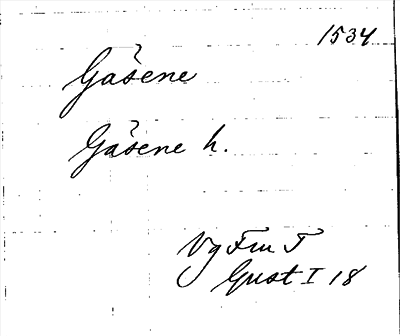 1534
Gåsene
Gåsene h.
Vg Fm T
Gust I 18